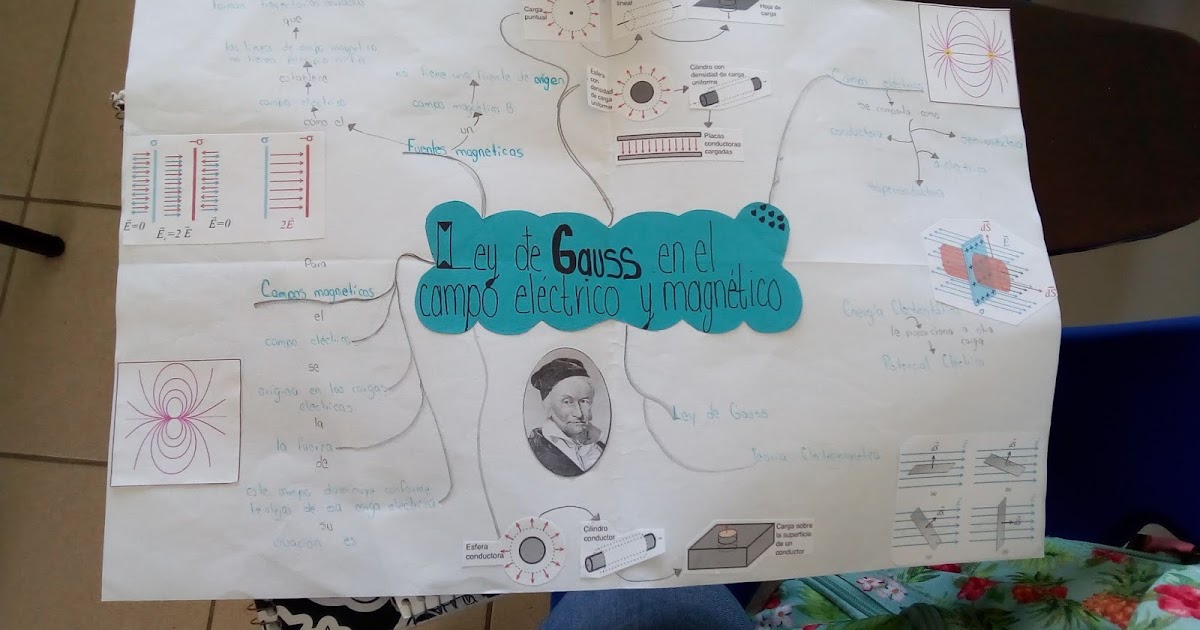 Carga
puntual
lineal
Hoja de
carga
que
las lineas de campo magnetico
no tienen
establece
campo electrico
como el
no tiene una fuente de origen
campos magneticos B
un
Fuentes magneticas
Esfera
con
densidad
de carga
uniforme
Cilindro con
densidad de carga
uniforme
Placas
conductoras
cargadas
Campo electrico
se comporta como
conductora
σ
-σ
σ
-σ
E=0
E=2 E
E=0
2E
Ley de Gauss en el
campo eléctrico y magnético
Para
Campos magneticos
el
campo eléctrico
se
origina en las cargas
electricas
la
la fuerza
de
este campo disminuye conforme
te alejas de esa carga electrica
su
ecuacion es
dS
E
dS
le proporciona a otra
carga
Potencial Electrico
Ley de Gauss
Teoria Electromagnetica
Esfera
conductora
Cilindro
conductor
Carga sobre
la superficie
de un
conductor